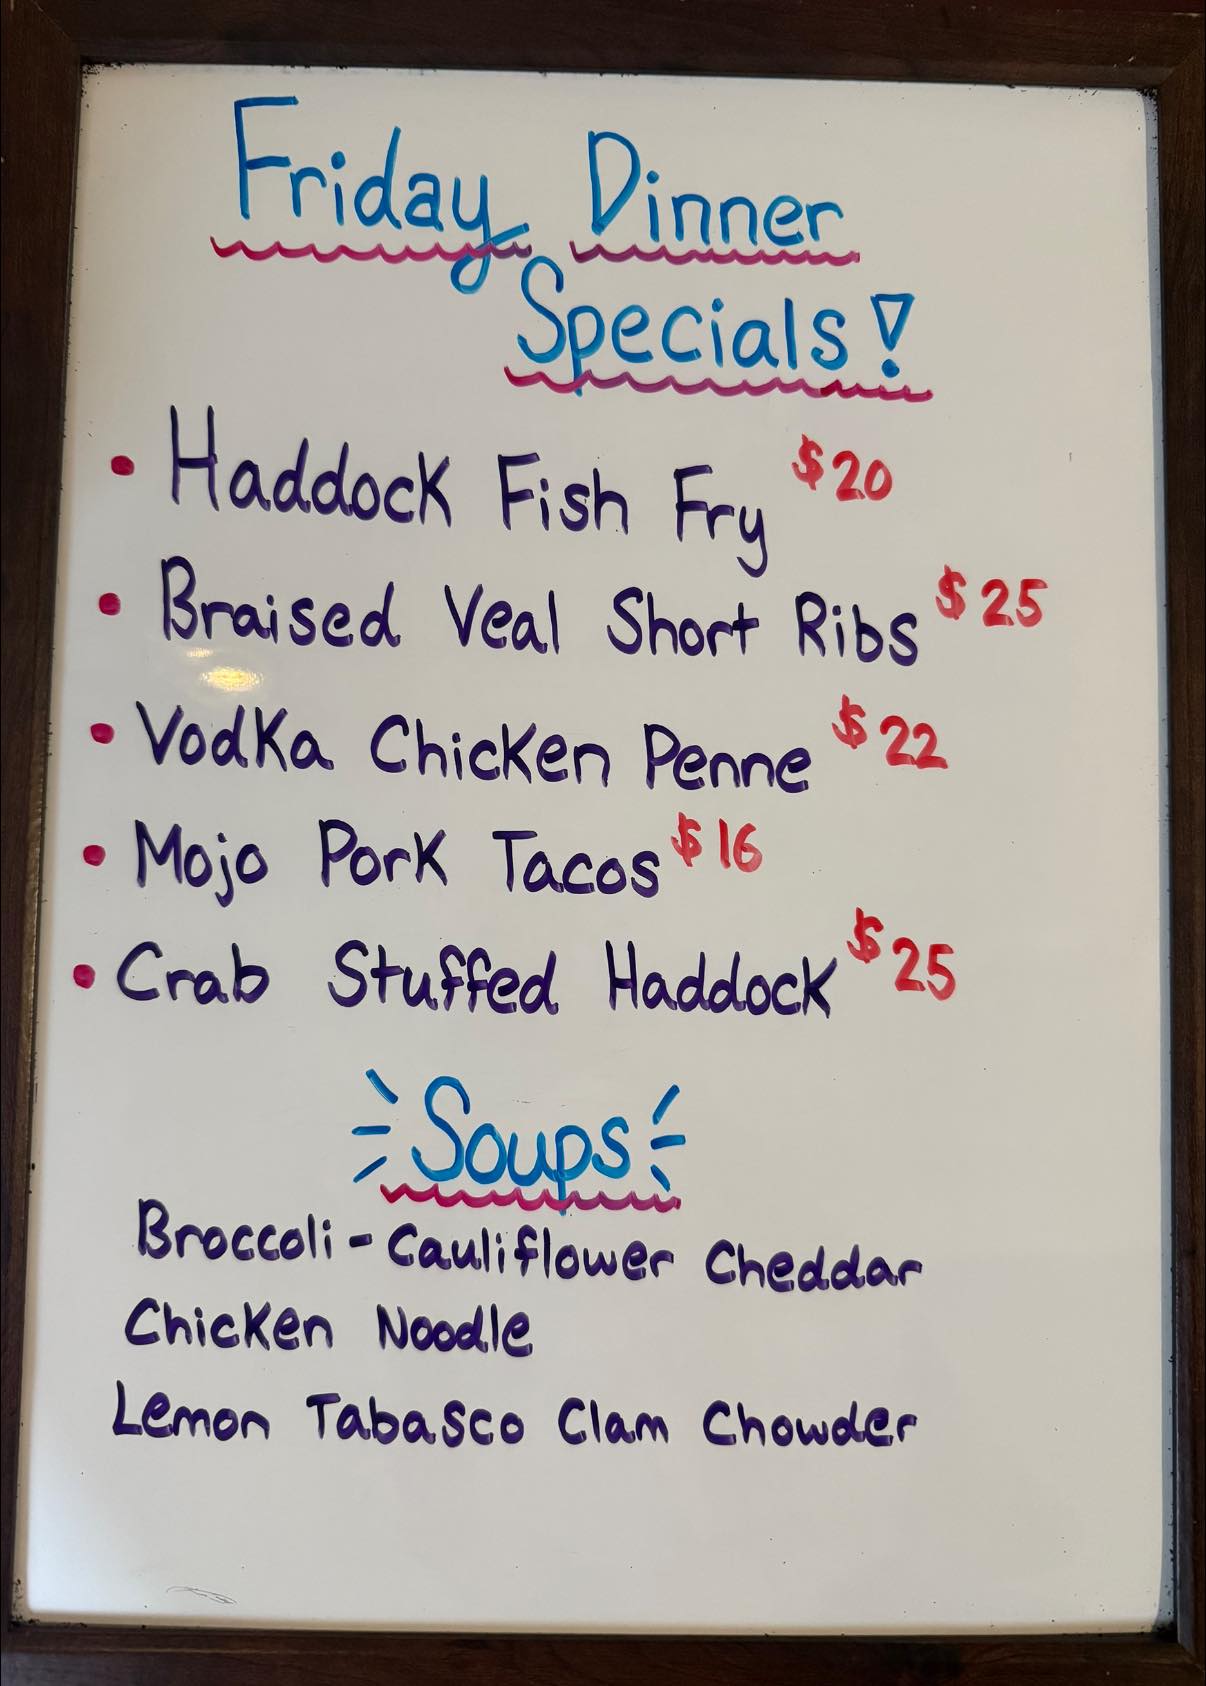 Friday Dinner
Specials!
• Haddock Fish Fry $20
• Braised Veal Short Ribs $25
• Vodka Chicken Penne $22
• Mojo Pork Tacos $16
• Crab Stuffed Haddock $25
Soups
Broccoli-Cauliflower Cheddar
Chicken Noodle
Lemon Tabasco Clam Chowder